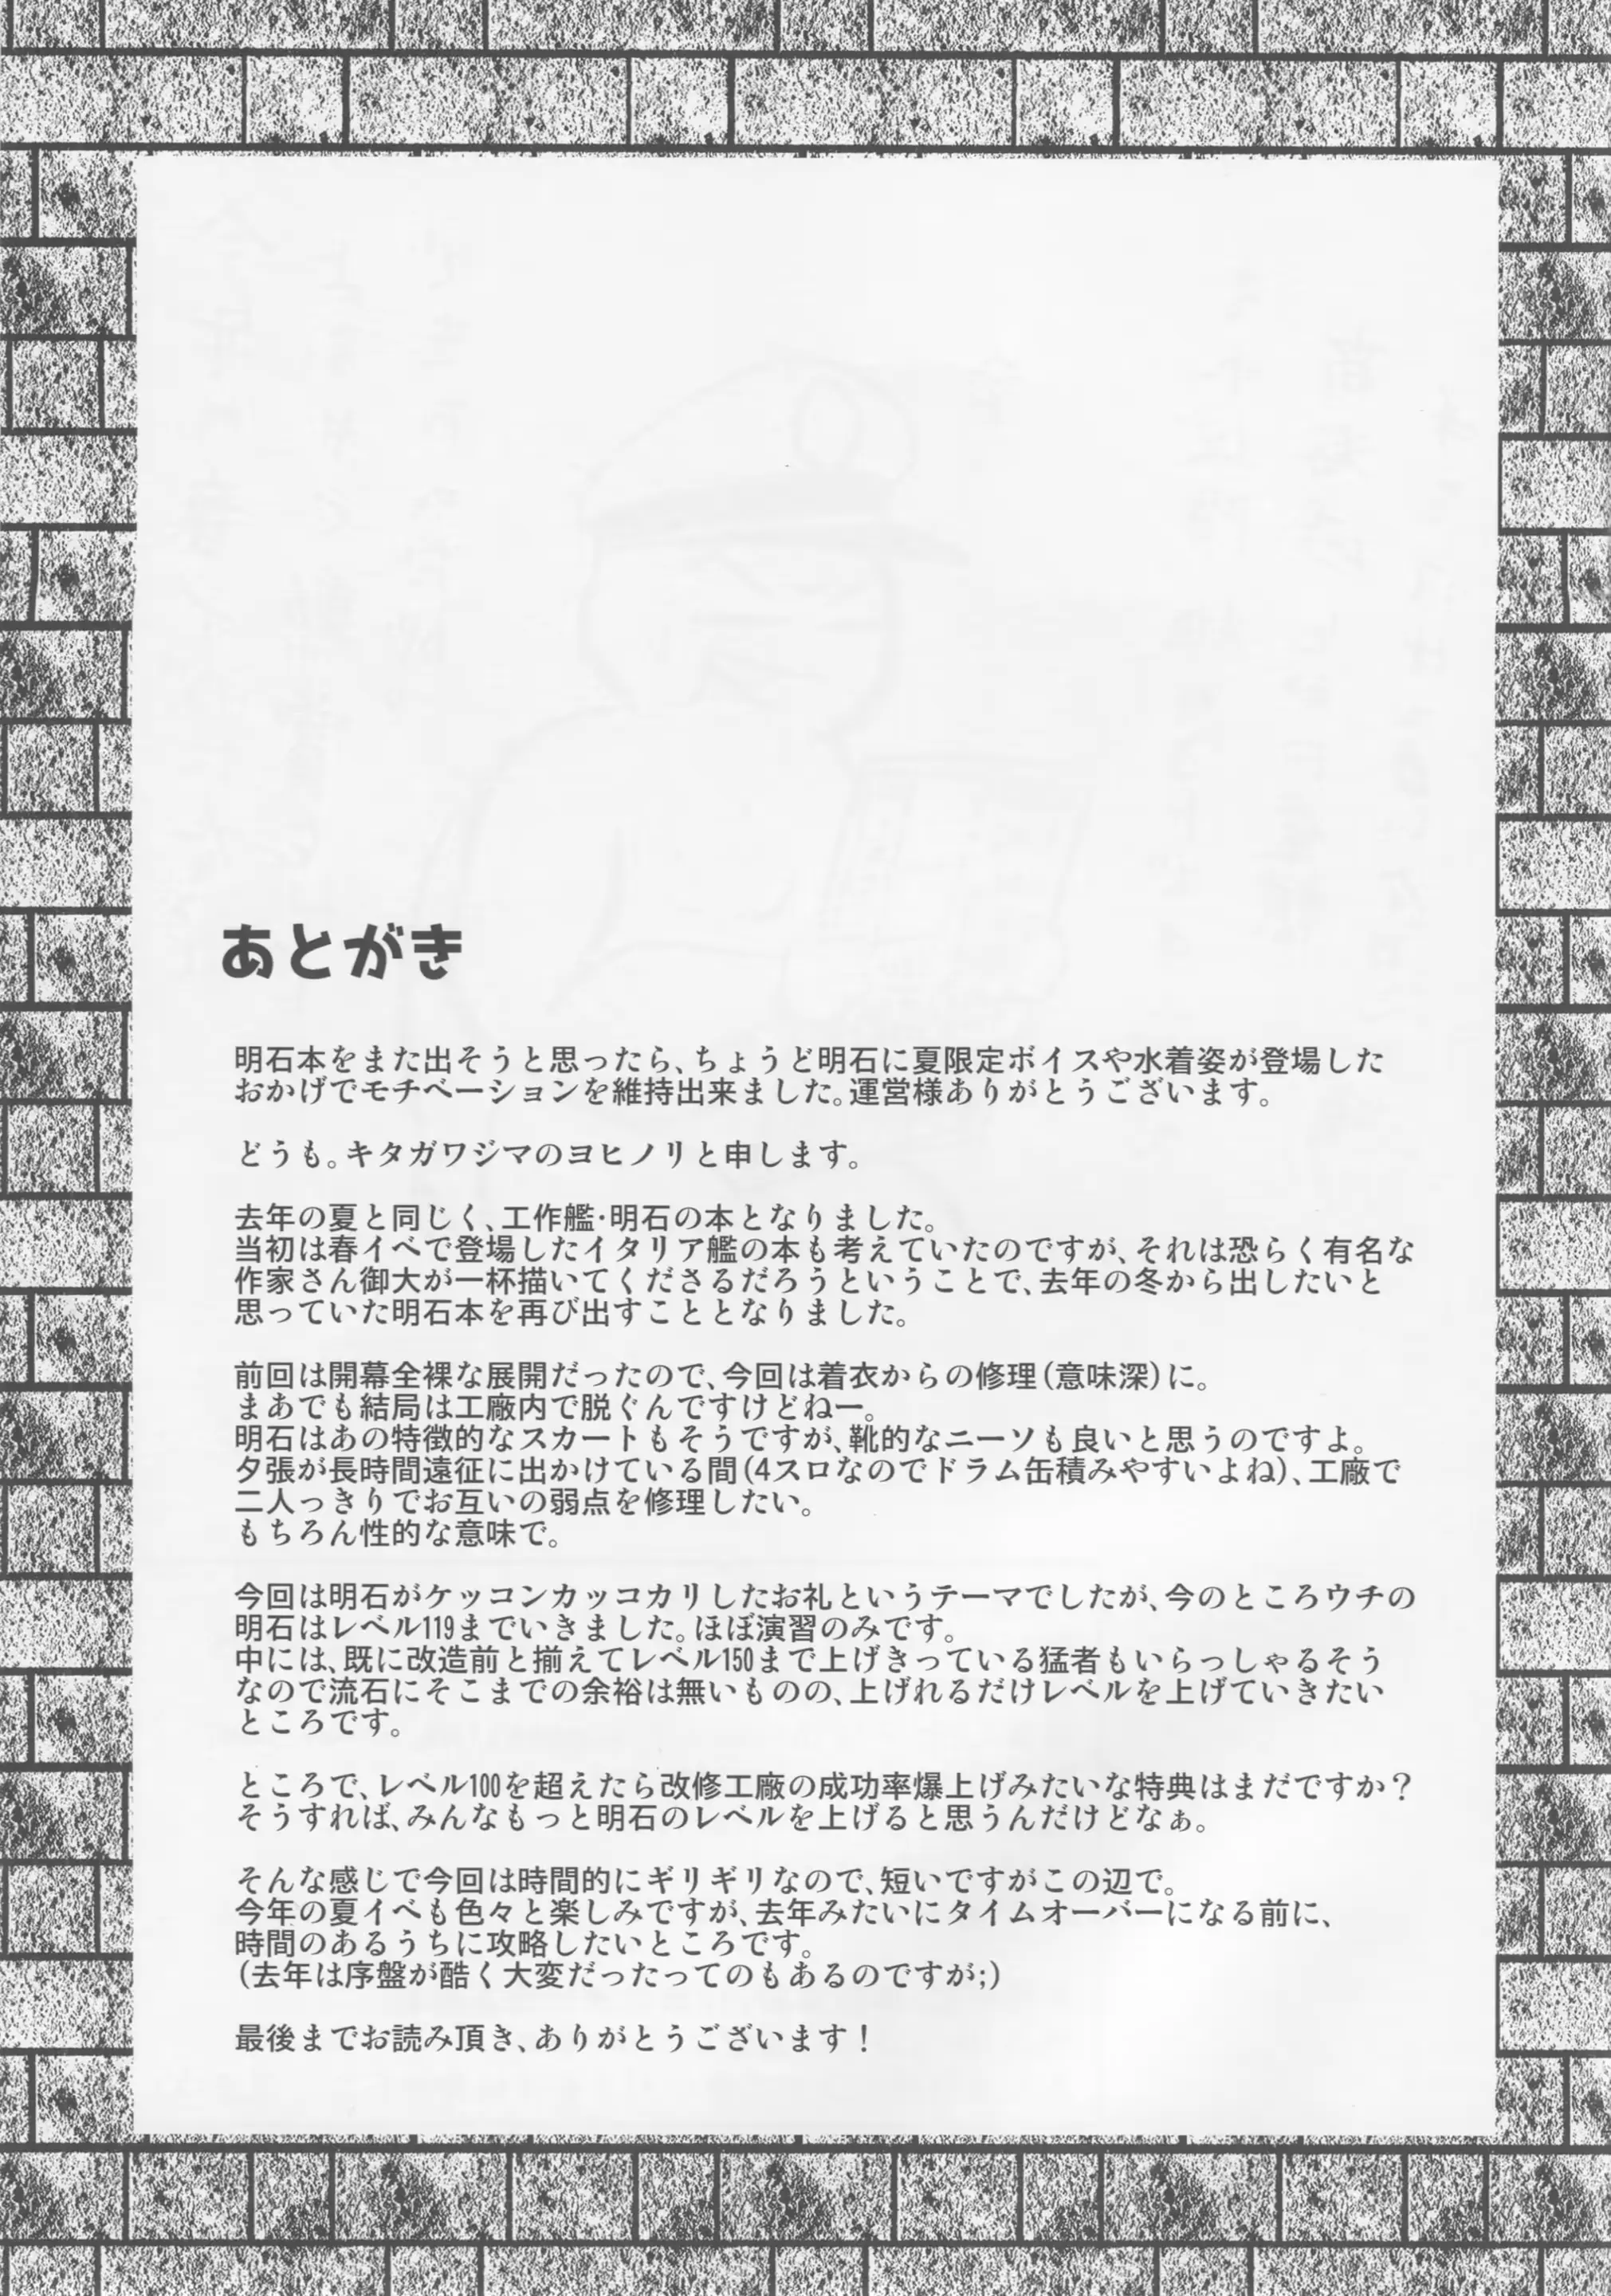 あとがき
明石本をまた出そうと思ったら、ちょうど明石に夏限定ボイスや水着姿が登場した
おかげでモチベーションを維持出来ました。運営様ありがとうございます。
どうも。キタガワジマのヨヒノリと申します。
去年の夏と同じく、工作艦・明石の本となりました。
当初は春イベで登場したイタリア艦の本も考えていたのですが、それは恐らく有名な
作家さん御大が一杯描いてくださるだろうということで、去年の冬から出したいと
思っていた明石本を再び出すこととなりました。
前回は開幕全裸な展開だったので、今回は着衣からの修理(意味深)に。
まあでも結局は工廠内で脱ぐんですけどねー。
明石はあの特徴的なスカートもそうですが、靴的なニーソも良いと思うのですよ。
夕張が長時間遠征に出かけている間(4スロなのでドラム缶積みやすいよね)、工廠で
二人っきりでお互いの弱点を修理したい。
もちろん性的な意味で。
今回は明石がケッコンカッコカリしたお礼というテーマでしたが、今のところウチの
明石はレベル119までいきました。ほぼ演習のみです。
中には、既に改造前と揃えてレベル150まで上げきっている猛者もいらっしゃるそう
なので流石にそこまでの余裕は無いものの、上げれるだけレベルを上げていきたい
ところです。
ところで、レベル100を超えたら改修工廠の成功率爆上げみたいな特典はまだですか？
そうすれば、みんなもっと明石のレベルを上げると思うんだけどなぁ。
そんな感じで今回は時間的にギリギリなので、短いですがこの辺で。
今年の夏イベも色々と楽しみですが、去年みたいにタイムオーバーになる前に、
時間のあるうちに攻略したいところです。
(去年は序盤が酷く大変だったってのもあるのですが;)
最後までお読み頂き、ありがとうございます！